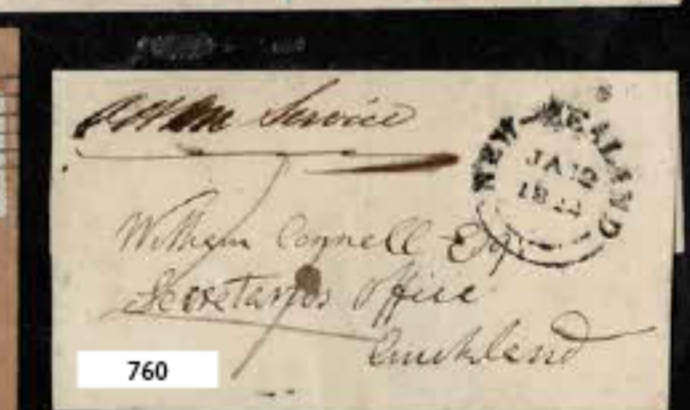 Service
NEW-ZEALAND
JA 12
William Connell Esq
Secretary's Office
Auckland
760